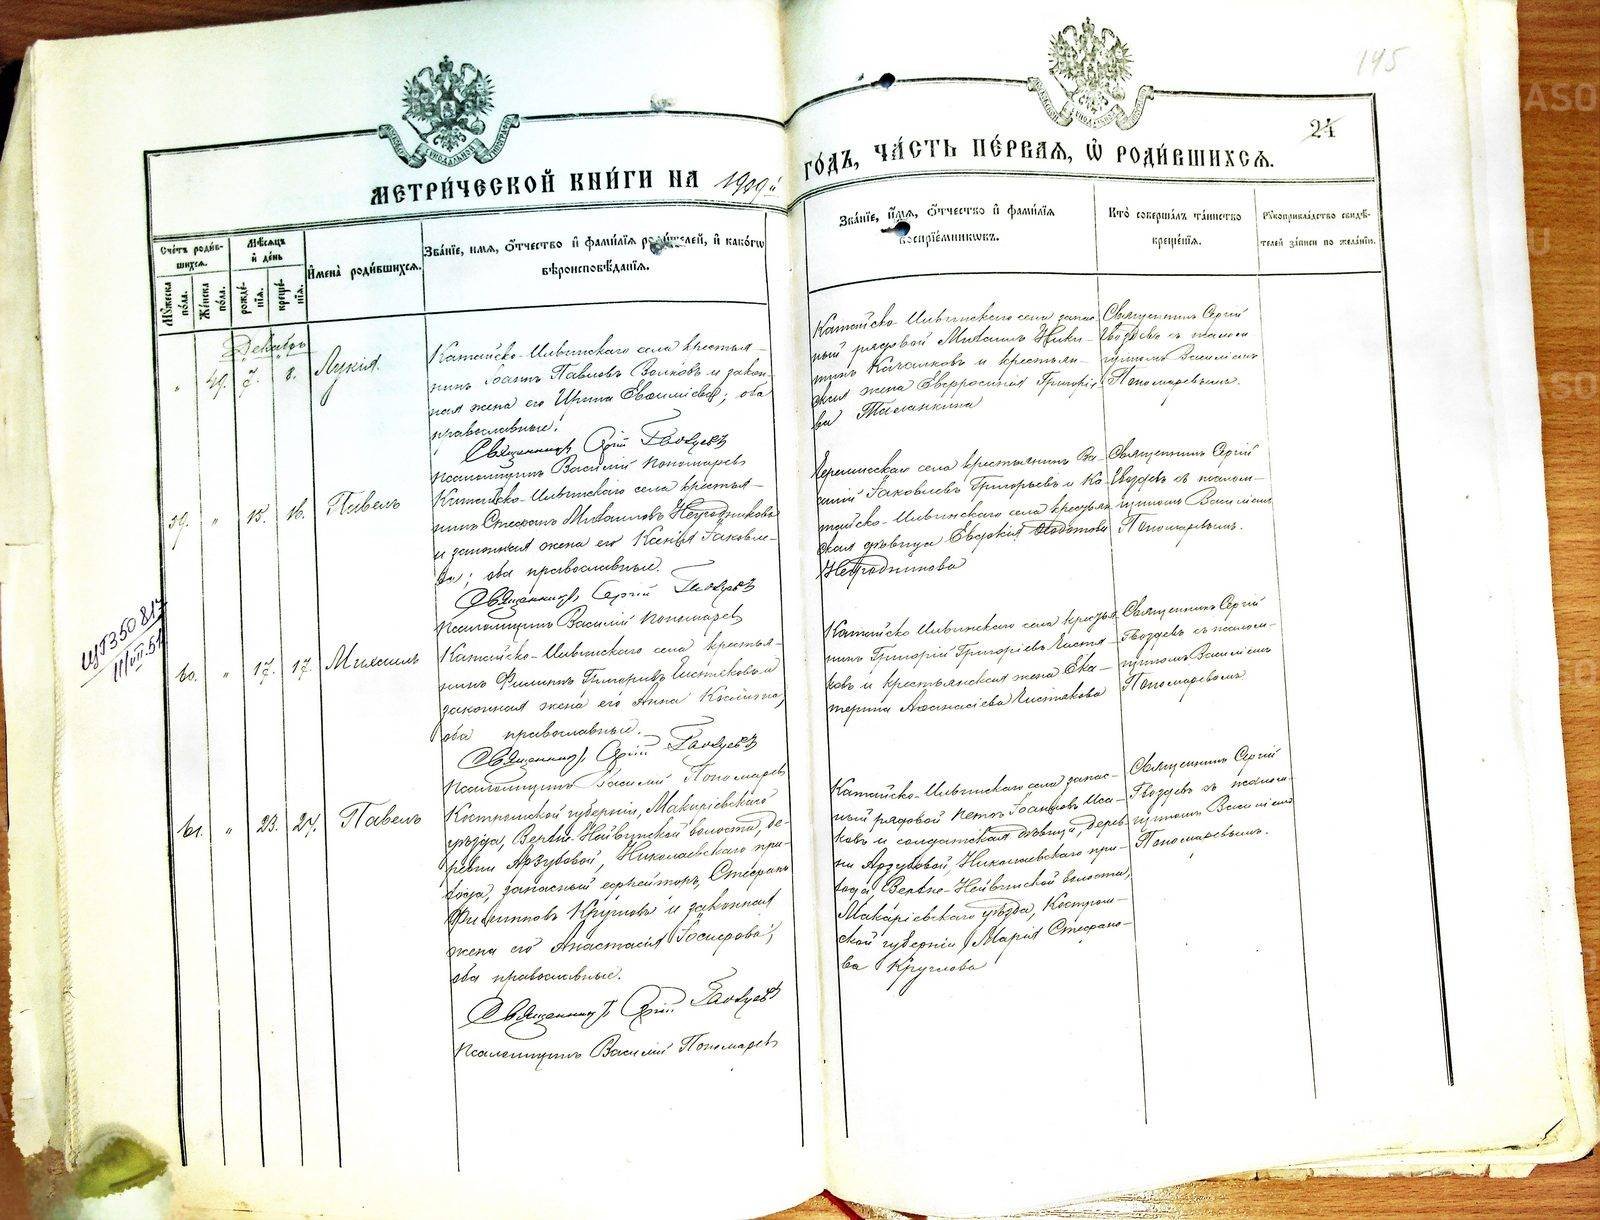 145
24
МЕТРИ́ЧЕСКОЙ КНИ́ГИ НА 1909й
ГО́ДЪ, ЧА́СТЬ ПЕ́РВАЯ, Ѡ РОДИ́ВШИХСЯ.
Сче́тъ роди́вшихся.
Му́жеска по́ла.
Же́нска по́ла.
Мѣ́сяцъ и де́нь
рожде́нїя.
креще́нїя.
И́мена̀ роди́вшихся.
Зва́нїе, и́мя, ѻ҆́тчество и҆ фами́лїя роди́телей, и҆ како́гѡ
вѣроисповѣ́данїя.
Зва́нїе, и҆́мя, ѻ҆́тчество и҆ фами́лїя
воспрїе́мниковъ.
Кто̀ соверша́лъ та́инство
креще́нїя.
Рꙋкоприкла́дство свидѣ́телей за́писи по жела́нїю.
Декабрь
" 49. 7. 8. Лукія.
Катайско-Ильинскаго села крестья-
нинъ Іоаннъ Павловъ Волковъ и закон-
ная жена его Ирина Евсиміева; оба
православные.
Священникъ Сергій Гвоздевъ
Псаломщикъ Василій Пономаревъ
Катайско-Ильинскаго села запас-
ный рядовой Михаилъ Ники-
тинъ Качалковъ и крестьян-
ская жена Евфросинія Григорье-
ва Таланкина
Священникъ Сергій
Гвоздевъ съ псалом-
щикомъ Василіемъ
Пономаревымъ.
59. " 15. 16. Павелъ
Катайско-Ильинскаго села крестья-
нинъ Стефанъ Михаиловъ Негодниковъ
и законная жена его Ксенія Іаковле-
ва; оба православные.
Священникъ Сергій Гвоздевъ
Псаломщикъ Василій Пономаревъ
села крестьянинъ Ва-
силій Іаковлевъ Григорьевъ и Ка-
тайско-Ильинскаго села крестьян-
ская дѣвица Евдокія
Негодникова
Священникъ Сергій
Гвоздевъ съ псалом-
щикомъ Василіемъ
Пономаревымъ.
60. " 17. 17. Михаилъ
Катайско-Ильинскаго села крестья-
нинъ Филиппъ Григорьевъ Чистяковъ и
законная жена его Анна
оба православные.
Священникъ Сергій Гвоздевъ
Псаломщикъ Василій Пономаревъ
Катайско-Ильинскаго села крестья-
нинъ Григорій Григорьевъ Чистя-
ковъ и крестьянская жена Ека-
терина Аѳанасіева Чистякова
Священникъ Сергій
Гвоздевъ съ псалом-
щикомъ Василіемъ
Пономаревымъ
61. " 23. 27. Павелъ
Костромской губерніи, Макарьевскаго
уѣзда, Верхне-Нейвинской волости, де-
ревни Арзубовой, Николаевскаго при-
хода, запасный ефрейторъ, Стефанъ
Филипповъ Кругловъ и законная
жена его Анастасія Іосифова;
оба православные.
Священникъ Сергій Гвоздевъ
Псаломщикъ Василій Пономаревъ
Катайско-Ильинскаго села запас-
ный рядовой Петръ Іоанновъ Иса-
ковъ и солдатская дѣвица, дерев-
ни Арзубовой, Николаевскаго при-
хода, Верхне-Нейвинской волости,
Макарьевскаго уѣзда, Костром-
ской губерніи, Марія Стефано-
ва Круглова
Священникъ Сергій
Гвоздевъ съ псалом-
щикомъ Василіемъ
Пономаревымъ.